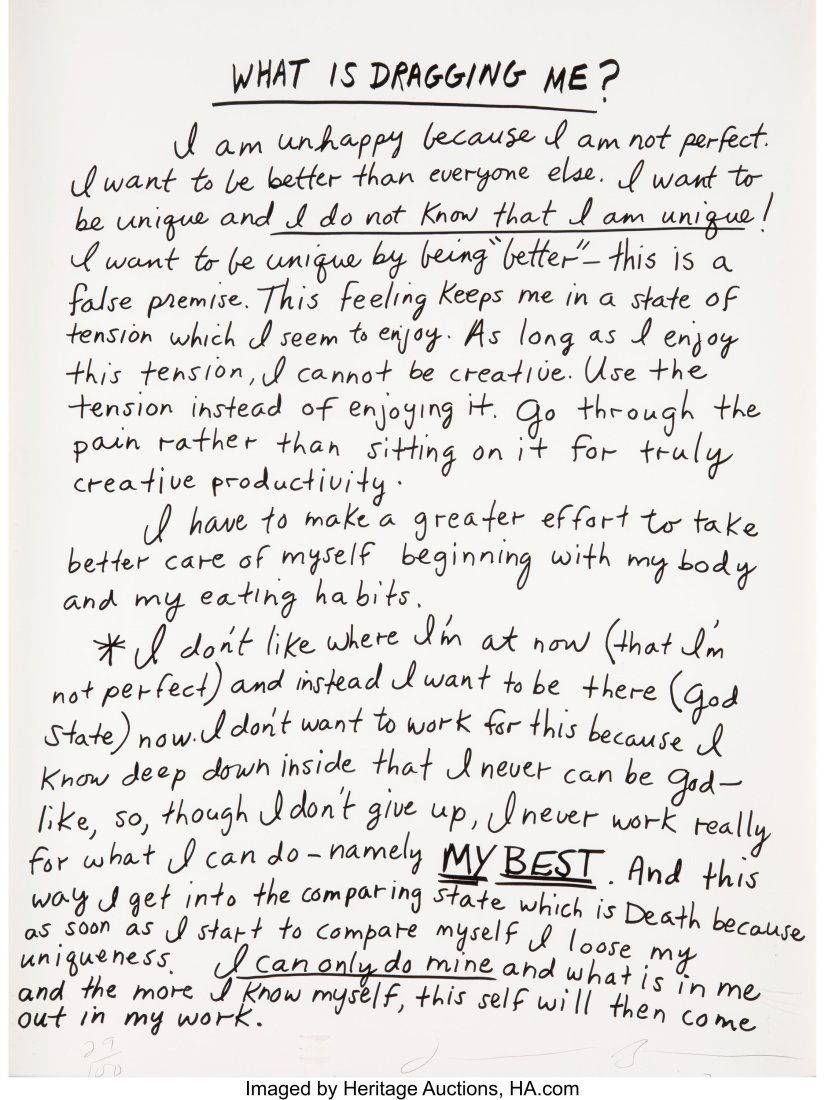 WHAT IS DRAGGING ME?
I am unhappy because I am not perfect.
I want to be better than everyone else. I want to
be unique and I do not know that I am unique!
I want to be unique by being "better" – this is a
false premise. This feeling keeps me in a state of
tension which I seem to enjoy. As long as I enjoy
this tension, I cannot be creative. Use the
tension instead of enjoying it. Go through the
pain rather than sitting on it for truly
creative productivity.
I have to make a greater effort to take
better care of myself beginning with my body
and my eating habits.
* I don't like where I'm at now (that I'm
not perfect) and instead I want to be there (God
State) now. I don't want to work for this because I
know deep down inside that I never can be God–
like, so, though I don't give up, I never work really
for what I can do – namely MY BEST. And this
way I get into the comparing state which is Death because
as soon as I start to compare myself I loose my
uniqueness. I can only do mine and what is in me
and the more I know myself, this self will then come
out in my work.
29/100
Imaged by Heritage Auctions, HA.com